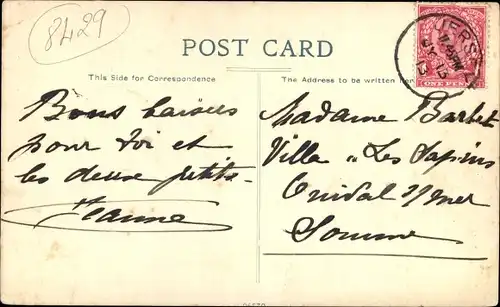 8429
POST CARD
This Side for Correspondence
The Address to be written her
ONE PENNY
Bons baisers
pour toi et
les deux petits
Jeanne
Madame Barbet
Villa "Les Sapins
Onival s/mer
Somme